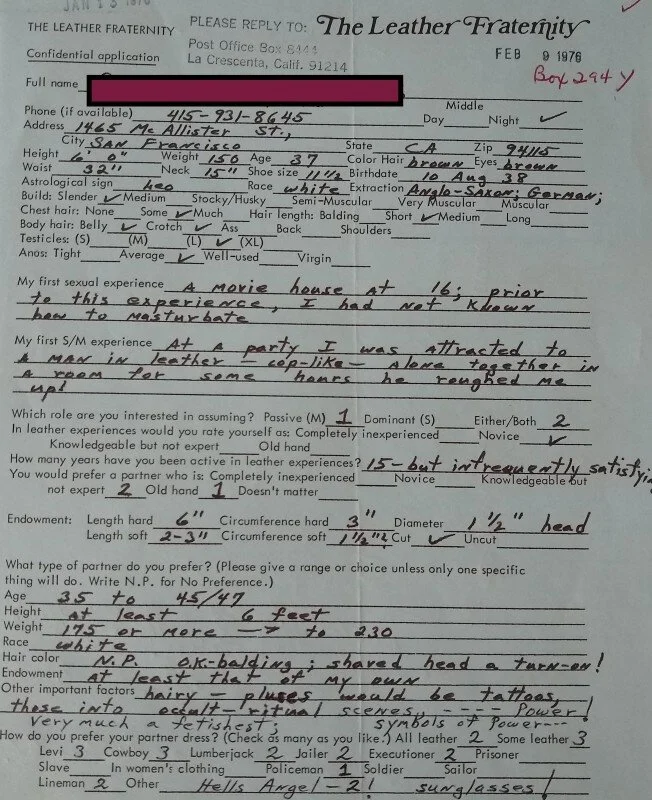 JAN 13 1976
THE LEATHER FRATERNITY PLEASE REPLY TO: The Leather Fraternity
Confidential application Post Office Box 8444 FEB 9 1976
La Crescenta, Calif. 91214 Box 294 Y
Full name
Middle
Phone (if available) 415-931-8645 Day Night ✓
Address 1465 McAllister St.,
City San Francisco State CA Zip 94115
Height 6' 0" Weight 150 Age 37 Color Hair brown Eyes brown
Waist 32" Neck 15" Shoe size 11 1/2 Birthdate 10 Aug 38
Astrological sign Leo Race white Extraction Anglo-Saxon; German;
Build: Slender ✓ Medium Stocky/Husky Semi-Muscular Very Muscular Muscular
Chest hair: None Some ✓ Much Hair length: Balding Short ✓ Medium Long
Body hair: Belly ✓ Crotch ✓ Ass Back Shoulders
Testicles: (S) (M) (L) ✓ (XL)
Anus: Tight Average ✓ Well-used Virgin
My first sexual experience A movie house at 16; prior
to this experience, I had not known
how to masturbate
My first S/M experience At a party I was attracted to
a man in leather - cop-like - alone together in
a room for some hours he roughed me
up!
Which role are you interested in assuming? Passive (M) 1 Dominant (S) Either/Both 2
In leather experiences would you rate yourself as: Completely inexperienced Novice ✓
Knowledgeable but not expert Old hand
How many years have you been active in leather experiences? 15 - but infrequently satisfying
You would prefer a partner who is: Completely inexperienced Novice Knowledgeable but
not expert 2 Old hand 1 Doesn't matter
Endowment: Length hard 6" Circumference hard 3" Diameter 1 1/2" head
Length soft 2-3" Circumference soft 1 1/2"? Cut ✓ Uncut
What type of partner do you prefer? (Please give a range or choice unless only one specific
thing will do. Write N.P. for No Preference.)
Age 35 to 45/47
Height At least 6 feet
Weight 175 or more → to 230
Race white
Hair color N.P. O.K.-balding; shaved head a turn-on!
Endowment At least that of my own
Other important factors hairy - pluses would be tattoos,
those into occult-ritual scenes, ---- Power!
Very much a fetishest; symbols of Power---
How do you prefer your partner dress? (Check as many as you like.) All leather 2 Some leather 3
Levi 3 Cowboy 3 Lumberjack 2 Jailer 2 Executioner 2 Prisoner
Slave In women's clothing Policeman 1 Soldier Sailor
Lineman 2 Other Hells Angel - 2! sunglasses!